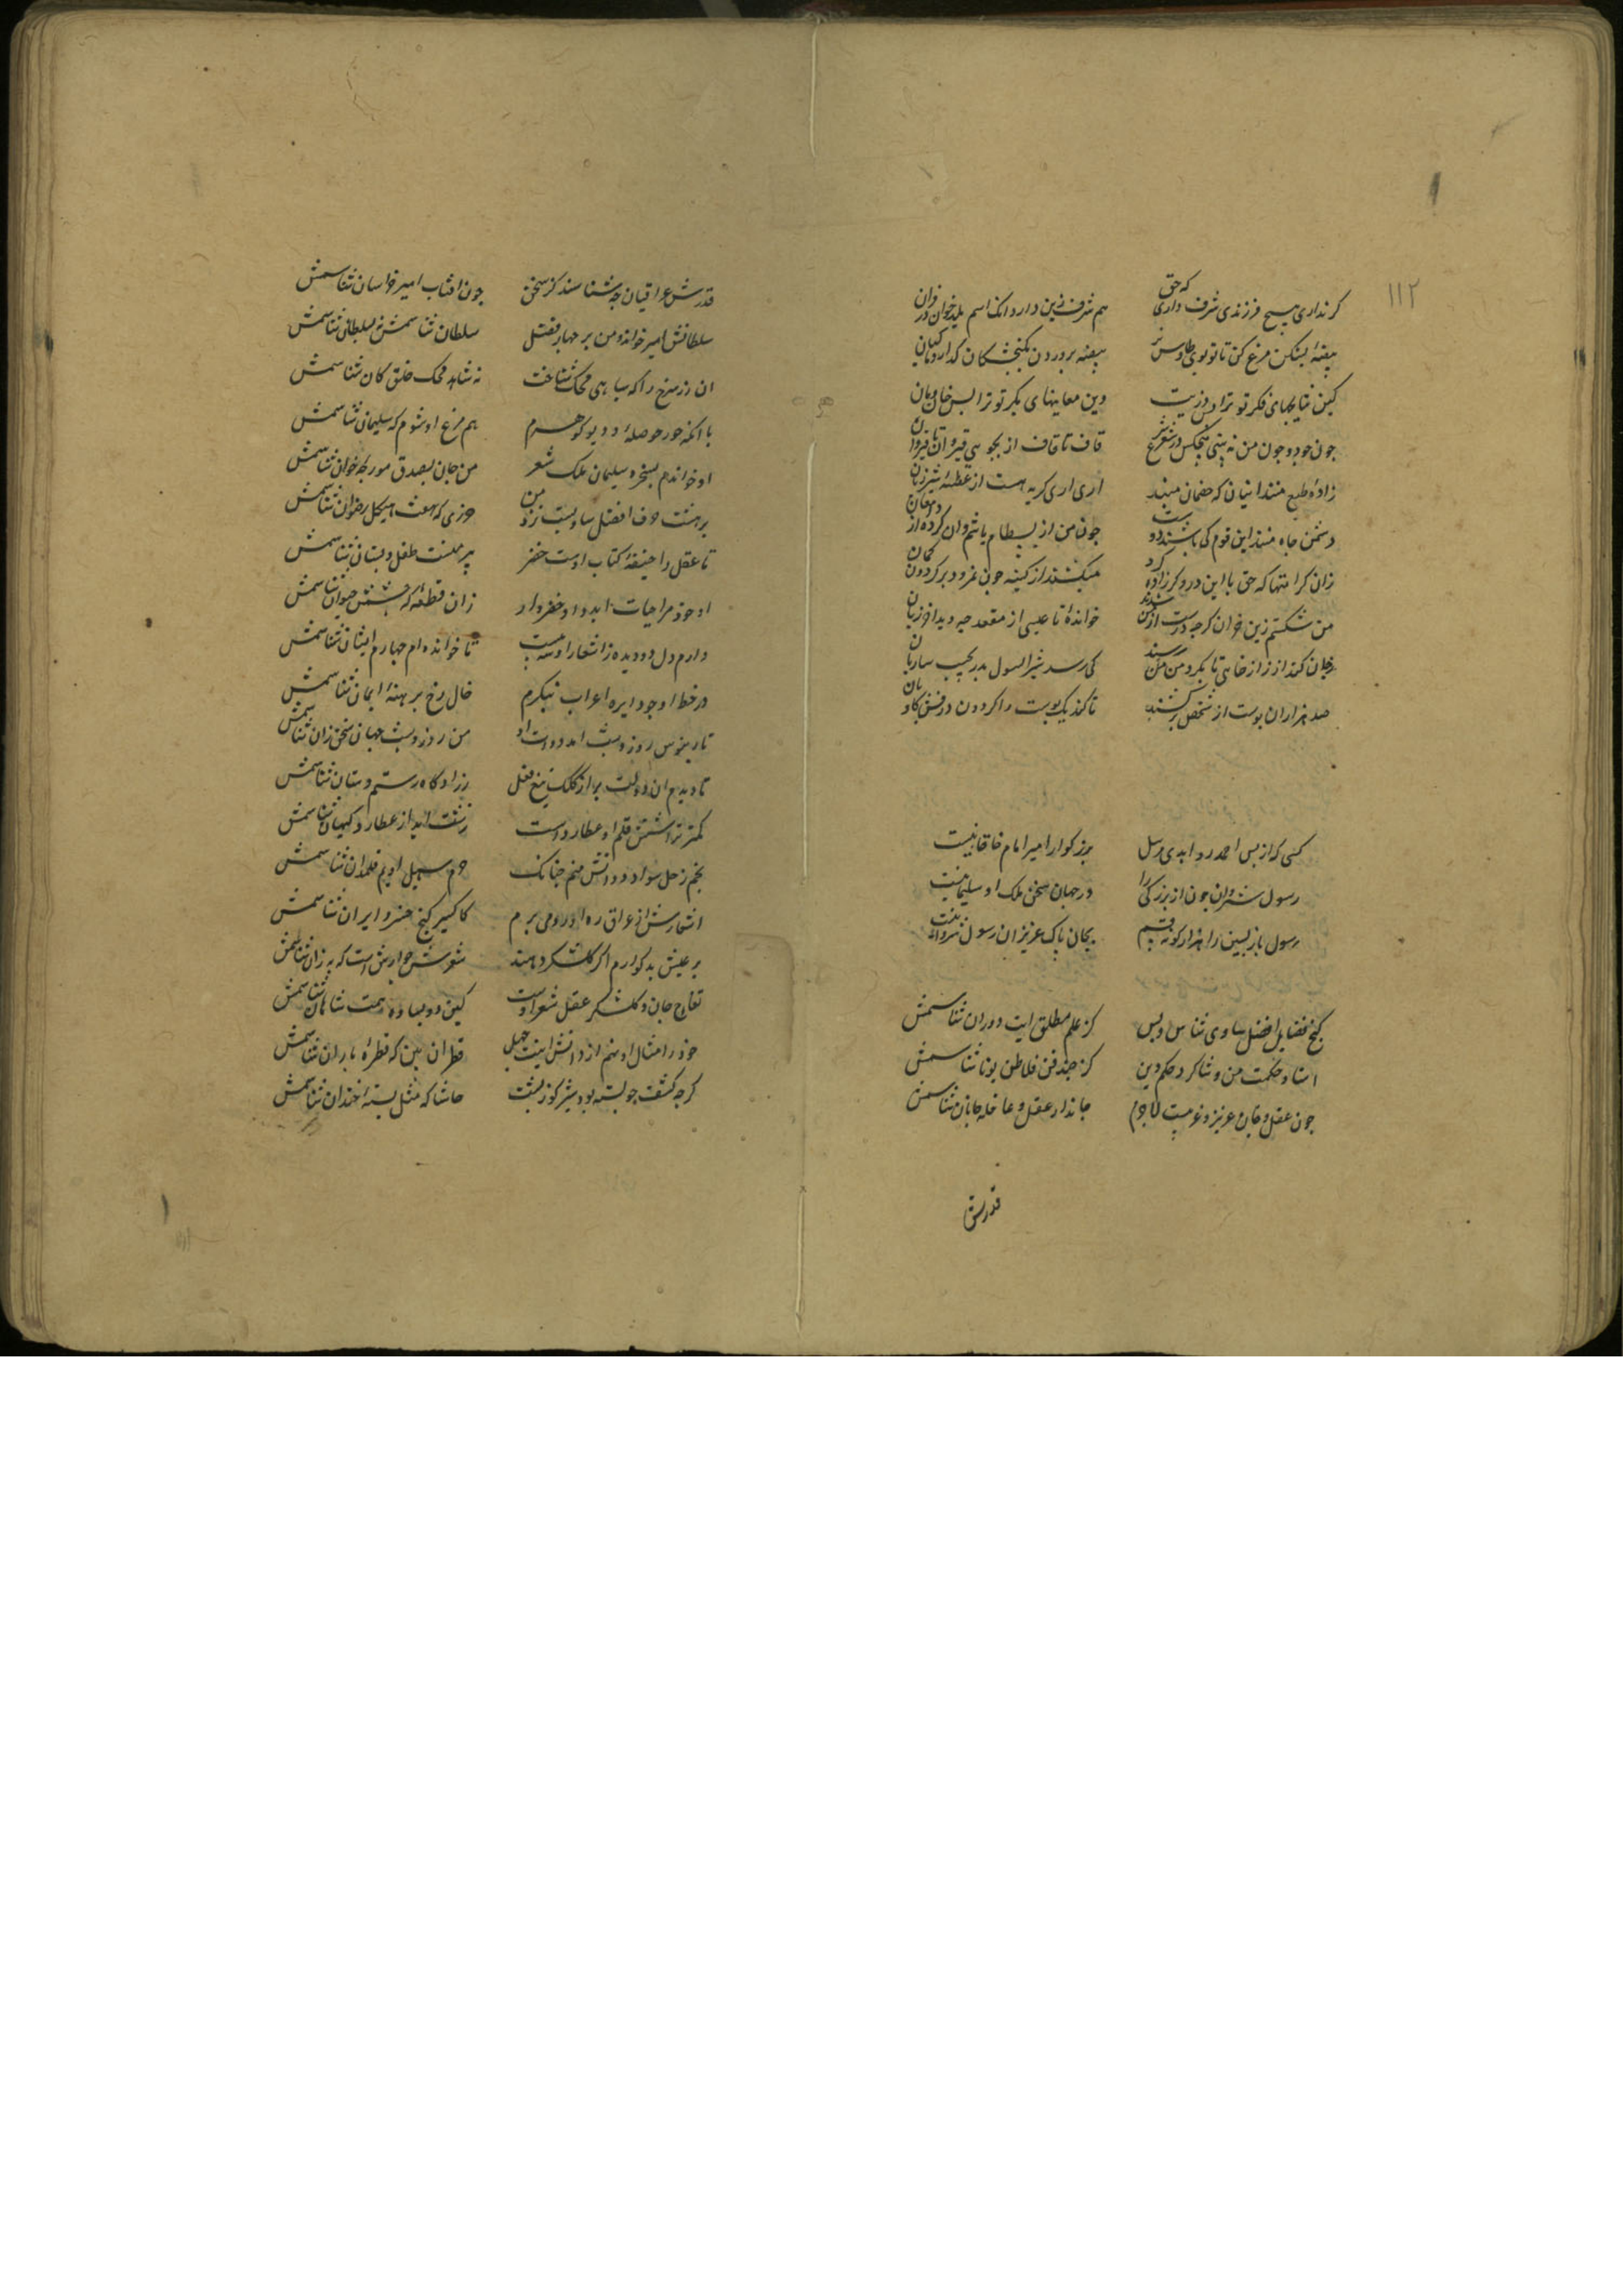 ۱۱۲
کرنداری هیچ فرزندی شرف داری که حق هم شرف زین دارد انک اسم یلد خوان در قران
بیضه بشکن مرغ کن تا تو بوی طاوس نر بیضه پروردن بکنجشکان کذار و ماکیان
کین نتایجهای فکر تو ترا بس ذریت وین معاینهای بکر تو ترا بس خان و مان
جون خود و جون من نه بینی هیجکس در شعر و شرع قاف تا قاف از بجوی قیروان تا قیروان
زاده طبع منند اینان که خصمان منند اری اری کربه هست از عطسه شیر ژیان
دشمن جاه منند این قوم کی باشند دوست جون من از بسطام باشم وان کرده از دامغان
زان کرامتها که حق با این دروکر زاده کرد میکشند از کینه جون نمرود بر کردون کمان
من شکستم زین خران کرجه درست از من شدند خوانده تا عیسی از مقعد جه دید اخر زیان
کی رسد شیر السول بدر بجیب ساربان
صد هزاران بوست از شخص بر کشند تا کند یک بوست را کردون درفش کاویان
کسی که از بس احمد روا بدی مرسل بزرکوار امیر امام خاقانیست
رسول شروان جون از بزرکی را در جهان سخن ملک او سلیمانیست
رسول باز بسین را هزار کونه قسم بجان باک عزیزان رسول شروانیست
کنج فضایل افضل ساوی شناس و بس کز علم مطلق ایت دوران شناسمش
استاد حکمت من و شاکرد حکم دین کز جند فن فلاطن یونان شناسمش
جون عقل و جان عزیز و غریبست لاجرم جاندار عقل و عاقله جان شناسمش
قدرش
قدرش عراقیان جه شناسند کز سخن جون افتاب امیر خراسان شناسمش
سلطانش امیر خواند و من بر جهان فضل سلطان شناسمش نه بسلطان شناسمش
ان زر سرخ را که سیاهی محک شناخت نه شاهد محک خلف کان شناسمش
با انکه جور حوصله و دیو کوهرم هم مرغ او شوم که سلیمان شناسمش
او خواندم بسخره سلیمان ملک شعر من جان بصدق مورجه خوان شناسمش
بر هشت حرف افضل ساویست نزد من حرزی که هفت هیکل رضوان شناسمش
تا عقل را خلیفه کتاب اوست خضر بیر منست طفل دبستان شناسمش
او خود مرا حیات ابد داد خضروار زان قطعه که جشمه حیوان شناسمش
دارم دل و دو دیده ز اشعار او سه بیت تا خوانده ام جهارم ایشان شناسمش
در خط او جو دایره اعراب بنکرم خال رخ برهنه ایمان شناسمش
تا رینوس روز و شب امد دوات او من روز و شب جهان سخن زان شناسمش
تا دیدم ان دوات بر از کلک تیغ فعل زرادکاه رستم دستان شناسمش
کمتر تراشش قلم او عطارد است زشت اید از عطارد کیهان شناسمش
بحم زحل سواد دواتش منم جنانک جرم سهیل ادیم قلمدان شناسمش
اشعارش از عراق ره اورد می برم کاکسیر کنج خسرو ایران شناسمش
بر عیش بدکوارم اکر کلشکر دهند شعرش جوارش است که به زان شناسمش
تفاح جان و کلشکر عقل شعر اوست کین دو بساوه همت شاهان شناسمش
خود را مثال او نهم از دانش اینت جهل قطران بین که قطره باران شناسمش
کرجه کشفت جو بسته بود شیر کوز بشت حاشا که مثل بسته خندان شناسمش